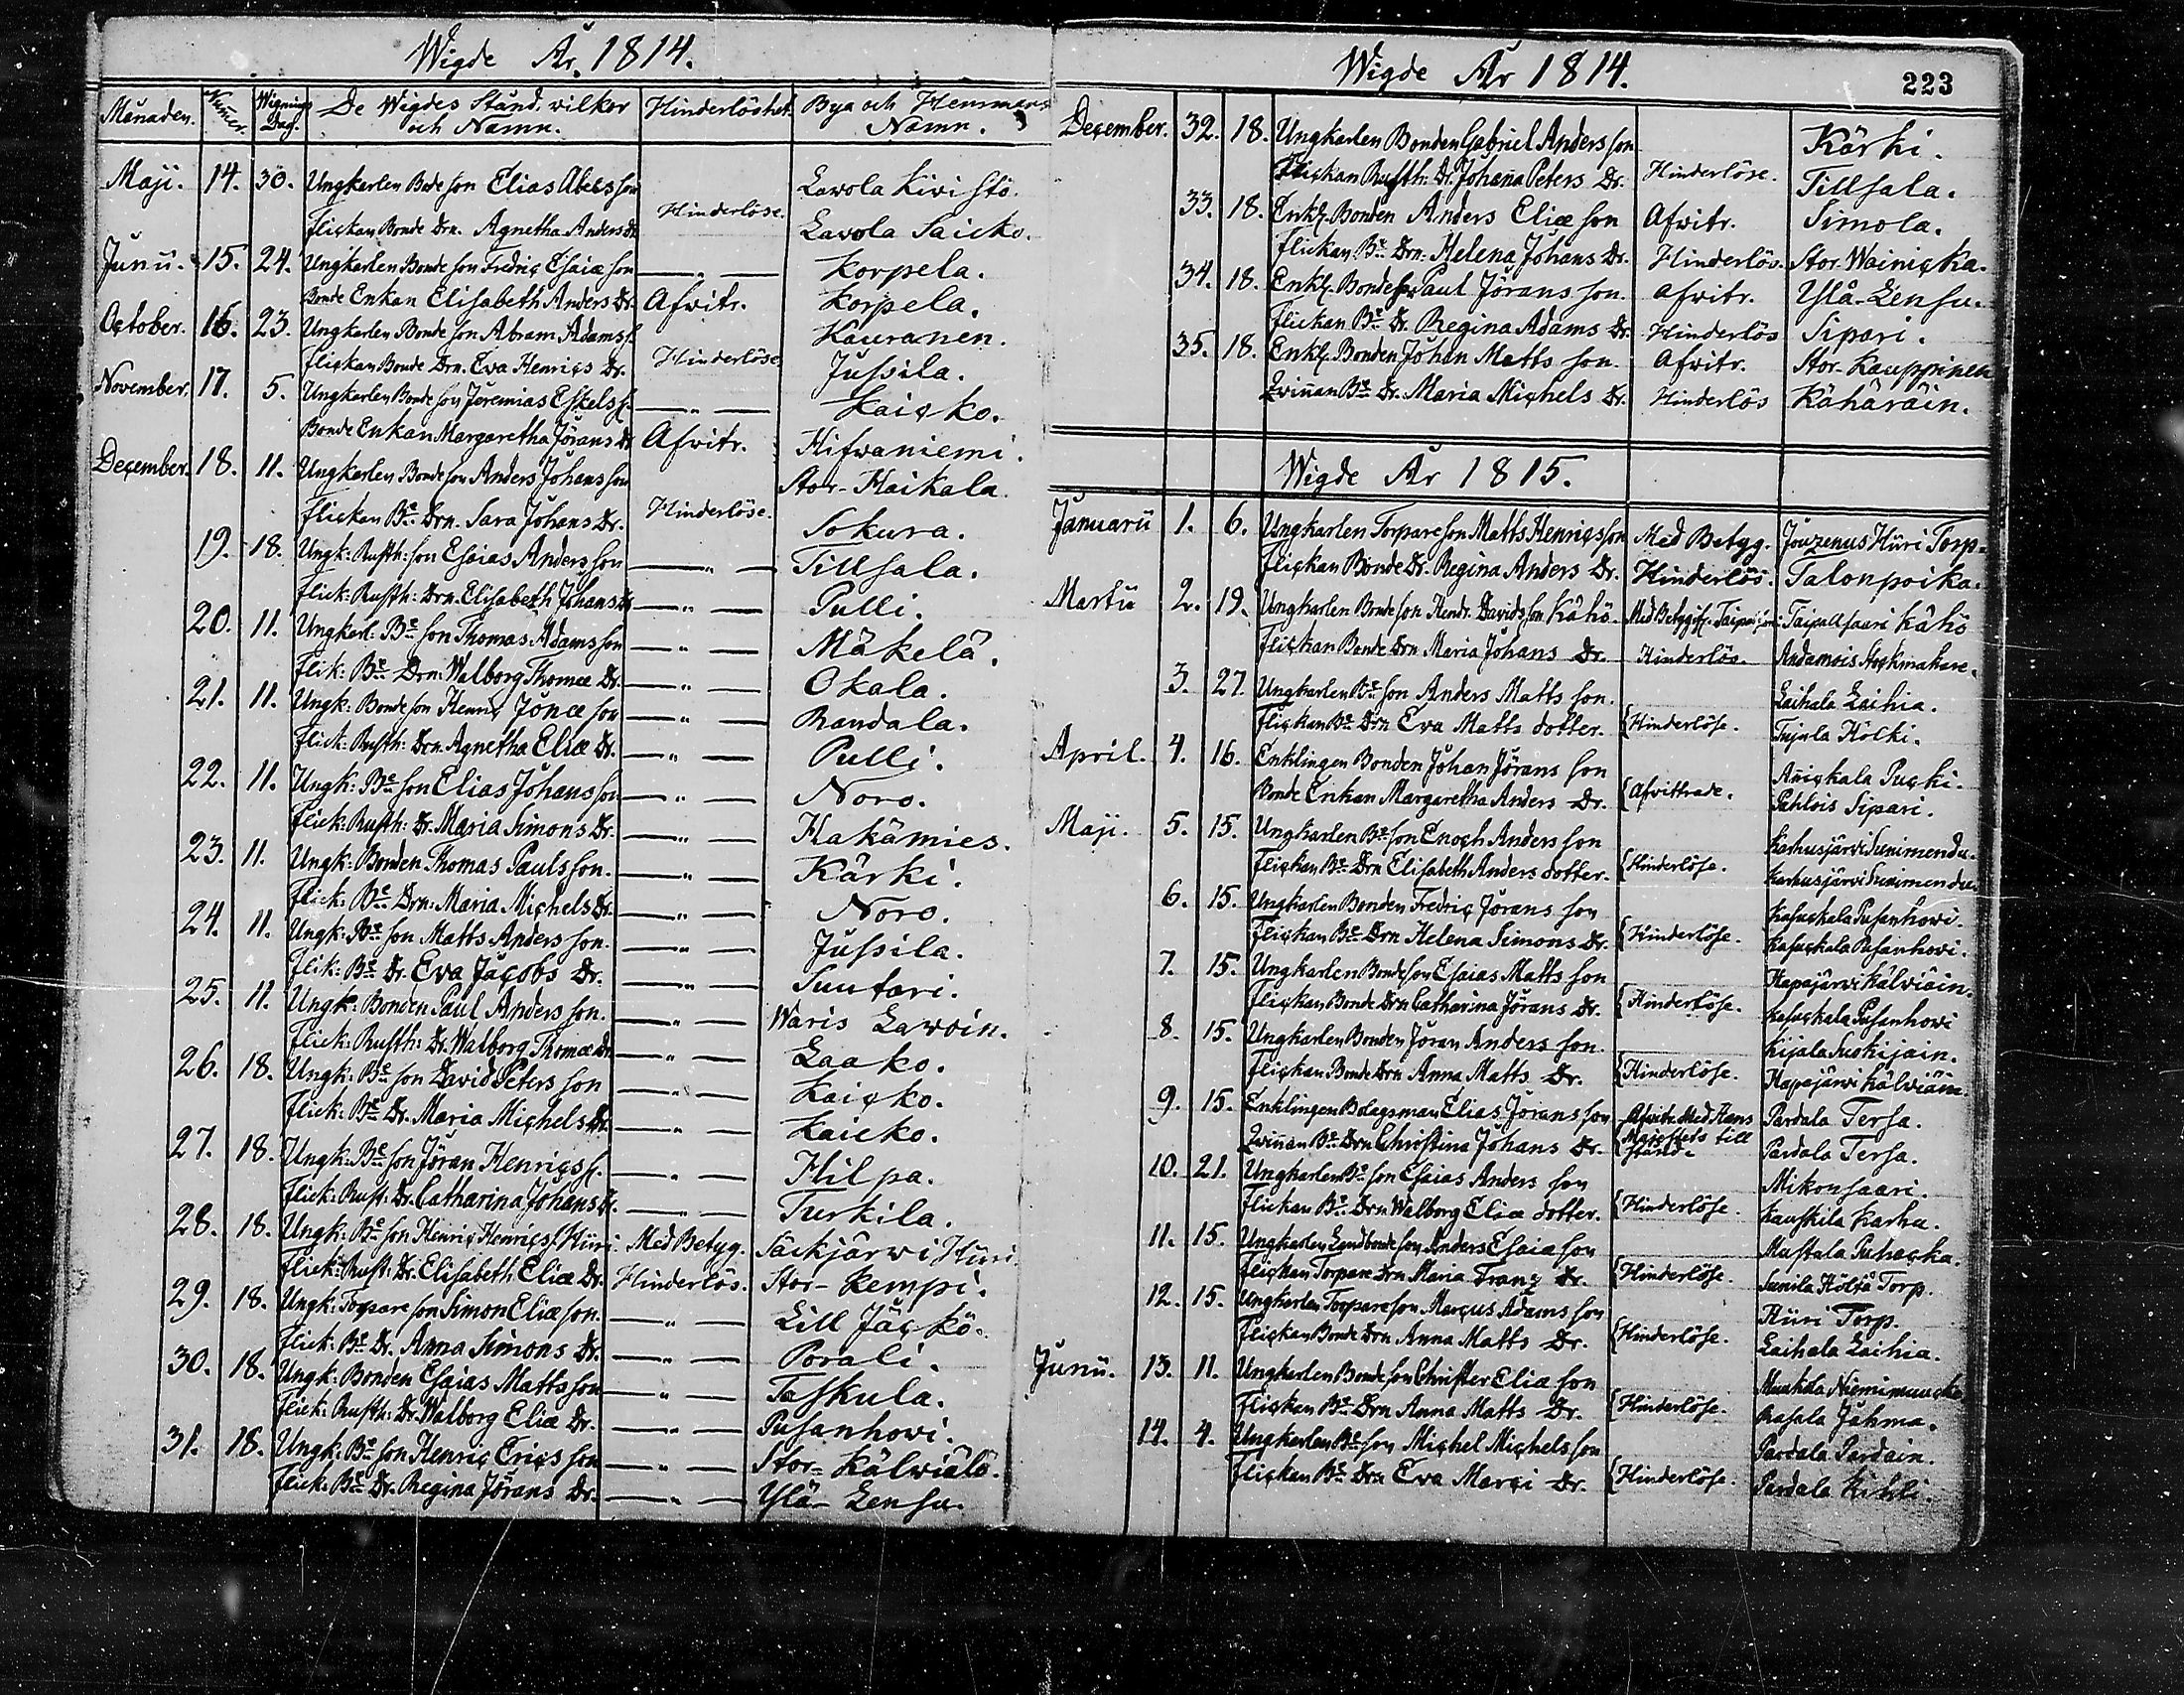 Wigde År. 1814.
Månaden. Numer. Wignings Dag. De Wigdes Stånd, wilkor och Namn. Hinderlöshet. Bya och Hemmans Namn.
Maji. 14. 30. Ungkarlen Bode son Elias Abels son Lavola Kivistö.
Flickan Bonde Drn. Agnetha Anders Dr Hinderlöse. Lavola Saicko.
Junii. 15. 24. Ungkarlen Bonde son Fredric Esaiæ son —„— Korpela.
Bonde Enkan Elisabeth Anders Dr. Afvitr. Korpela.
October. 16. 23. Ungkarlen Bonde son Abram Adams s. Kauranen.
Flickan Bonde Drn. Eva Henrics Dr. Hinderlöse Jussila.
November. 17. 5. Ungkarlen Bonde son Jeremias Eskels s. —„— Kaicko.
Bonde Enkan Margaretha Jörans Dr Afvitr. Hifwaniemi.
December. 18. 11. Ungkarlen Bonde son Anders Johans son Stor-Haikala.
Flickan Be. Drn. Sara Johans Dr. Hinderlöse. Sokura.
19. 18. Ungk: Rusth: son Esaias Anders son —„— Tillsala.
Flick: Rusth: Drn. Elisabeth Johans Dr —„— Pulli.
20. 11. Ungkarl: Be son Thomas Adams son —„— Mäkelä.
Flik: Be Drn: Walborg Thomæ Dr. —„— Okala.
21. 11. Ungk: Bonde son Henric Jonæ son —„— Randala.
Flick: Rusth: Drn. Agnetha Eliæ Dr. —„— Pulli.
22. 11. Ungk: Be son Elias Johans son —„— Noro.
Flick: Rusth: Dr. Maria Simons Dr. —„— Hakämies.
23. 11. Ungk: Bonden Thomas Pauls son. —„— Kärki.
Flick: Be Drn: Maria Michels Dr. —„— Noro.
24. 11. Ungk: Be son Matts Anders son. —„— Jussila.
Flik: Be Dr. Eva Jacobs Dr. —„— Suutari.
25. 11. Ungk: Bonden Paul Anders son. —„— Waris Lavoin.
Flick: Rusth: Dr. Walborg Thomæ Dr —„— Laako.
26. 18. Ungk: Be son David Peters son —„— Kaicko.
Flick: Be Dr. Maria Michels Dr. —„— Kaicko.
27. 18. Ungk: Be son Jöran Henrics s. —„— Hilpa.
Flick: Rust: Dr. Catharina Johans Dr. —„— Turkila.
28. 18. Ungk: Be son Henric Henrics s. Hüri. Med Betyg. Säckjärwi Hüri.
Flick: Rust: Dr. Elisabeth Eliæ Dr. Hinderlös. Stor-Kempi.
29. 18. Ungk: Torpare son Simon Eliæ son. —„— Lill Jäckö.
Flick: Be Dr. Anna Simons Dr. —„— Porali.
30. 18. Ungk: Bonden Esaias Matts son —„— Taskula.
Flick: Rusth: Dr. Walborg Eliæ Dr. —„— Pusanhowi.
31. 18. Ungk: Be son Henric Erics son —„— Stor-Kälwiälä.
Flick: Be Dr. Regina Jörans Dr. —„— Ylä-Lensu.
Wigde År 1814. 223
December. 32. 18. Ungkarlen Bonden Gabriel Anders son Kärki.
Flickan Rusth: Dr. Johana Peters Dr. Hinderlöse. Tillsala.
33. 18. Enkl. Bonden Anders Eliæ son Afvitr. Simola.
Flickan Be Drn: Helena Johans Dr. Hinderlös. Stor-Wainicka.
34. 18. Enkl. Bonden Paul Jörans son. Afvitr. Ylä-Lensu.
Flickan Be Dr. Regina Adams Dr. Hinderlös Sipari.
35. 18. Enkl. Bonden Johan Matts son. Afvitr. Stor-Kauppinen
Qvinan Be Dr. Maria Michels Dr. Hinderlös Kähäräin.
Wigde År 1815.
Januarii 1. 6. Ungkarlen Torpare son Matts Henrics son Med Betyg. Jouzenus Hüri Torp.
Flickan Bonde Dr. Regina Anders Dr. Hinderlös. Talonpoika.
Martii 2. 19. Ungkarlen Bonde son Hendr. Davids son Kähö. Med Betyg Taipalsaari Kähö
Flickan Bonde Drn Maria Johans Dr. Hinderlös.
3. 27. Ungkarlen Be son Anders Matts son. Laihala Laihia.
Flickan Be Drn Eva Matts dotter. Hinderlöse. Tujula Hölki.
April. 4. 16. Enklingen Bonden Johan Jörans son
Bonde Enkan Margaretha Anders Dr. Afvittrade. Pahlois Sipari.
Maji. 5. 15. Ungkarlen Be son Enoch Anders son Karhusjärvi
Flickan Be Drn Elisabeth Anders dotter. Hinderlöse. Karhusjärvi
6. 15. Ungkarlen Bonden Fredric Jörans son Kasuckala Pusanhowi.
Flickan Be Drn Helena Simons Dr. Hinderlöse. Kasuckala Pusanhowi.
7. 15. Ungkarlen Bonde son Esaias Matts son Hapajärwi Kälviäin.
Flickan Bonde Drn Catharina Jörans Dr. Hinderlöse. Kasuckala Pusanhowi
8. 15. Ungkarlen Bonden Jöran Anders son. Kijala Suckijain.
Flickan Bonde Drn Anna Matts Dr. Hinderlöse. Hapajärwi Kälwiäin.
9. 15. Enklingen Bolagsman Elias Jörans son Afvitr. Med Hans Pardala Tersa.
Qvinan Be Drn Christina Johans Dr. Majestets till stånd. Pardala Tersa.
10. 21. Ungkarlen Be son Esaias Anders son Mikonsaari.
Flickan Be Drn Walborg Eliæ dotter. Hinderlöse. Kauskila Karhu.
11. 15. Ungkarlen Landbonde son Anders Esaiæ son Mustala
Flickan Torpare Drn Maria Franz Dr. Hinderlöse. Sumila Höltä Torp.
12. 15. Ungkarlen Torpare son Marcus Adams son Hüri Torp.
Flickan Bonde Drn Anna Matts Dr. Hinderlöse. Laihala Laihia.
Junii. 13. 11. Ungkarlen Bonde son Christer Eliæ son
Flickan Be Drn Anna Matts Dr. Hinderlöse. Rasala Jähma.
14. 4. Ungkarlen Be son Michel Michels son Pardala Pardain.
Flickan Be Drn Eva Marci Dr. Hinderlöse. Pardala Kihli.